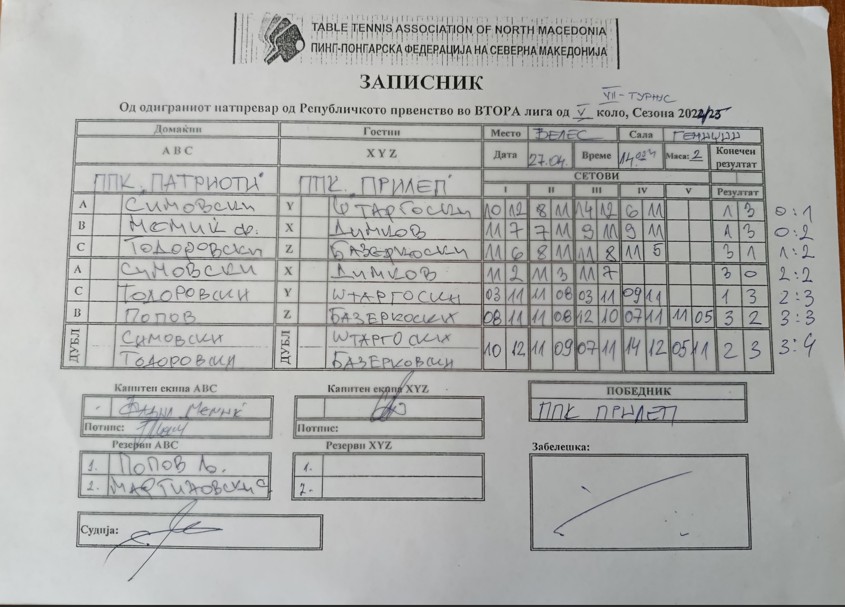 TABLE TENNIS ASSOCIATION OF NORTH MACEDONIA
ПИНГ-ПОНГАРСКА ФЕДЕРАЦИЈА НА СЕВЕРНА МАКЕДОНИЈА
ЗАПИСНИК
VII - ТУРНУС
Од одиграниот натпревар од Републичкото првенство во ВТОРА лига од V коло, Сезона 2024/25
Домаќин Гостин Место ВЕЛЕС Сала ГЕМИЏИИ
A B C X Y Z Дата 27.04. Време 14,02ч Маса: 2 Конечен резултат
ППК „ПАТРИОТИ" ППК „ПРИЛЕП" СЕТОВИ
I II III IV V Резултат
A СИМОВСКИ Y ШТАРГОСКИ 10 12 8 11 14 12 6 11 1 3 0:1
B МЕМИЌ Ф. X ДИМКОВ 11 7 7 11 9 11 9 11 1 3 0:2
C ТОДОРОВСКИ Z БАЗЕРКОСКИ 11 6 8 11 11 8 11 5 3 1 1:2
A СИМОВСКИ X ДИМКОВ 11 2 11 3 11 7 3 0 2:2
C ТОДОРОВСКИ Y ШТАРГОСКИ 03 11 11 08 03 11 09 11 1 3 2:3
B ПОПОВ Z БАЗЕРКОСКИ 08 11 11 08 12 10 07 11 11 05 3 2 3:3
ДУБЛ СИМОВСКИ ДУБЛ ШТАРГОСКИ 10 12 11 09 07 11 14 12 05 11 2 3 3:4
ТОДОРОВСКИ БАЗЕРКОВСКИ
Капитен екипа ABC Капитен екипа XYZ ПОБЕДНИК
МЕМИЌ ППК ПРИЛЕП
Потпис: Потпис:
Резерви ABC Резерви XYZ Забелешка:
1. ПОПОВ Љ. 1.
2. МАРТИНОВСКИ 2.
Судија: